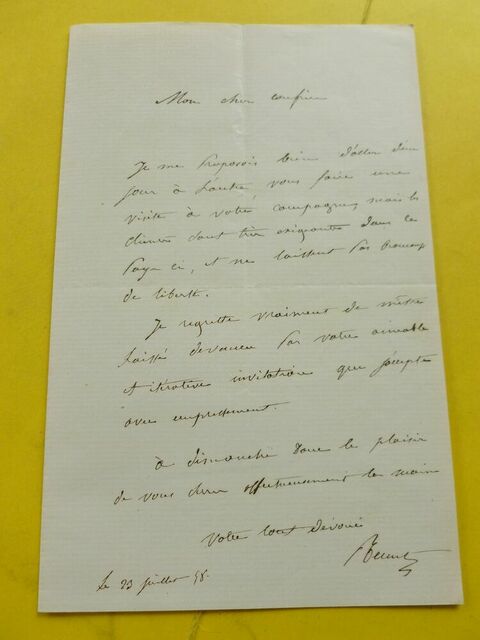 Mon cher confrère
Je me proposois bien d'aller d'un
jour à l'autre vous faire une
visite à votre campagne, mais les
clients sont très exigeants dans ce
pays ci, et ne laissent pas beaucoup
de liberté.
Je regrette vraiment de m'être
laissé devancer par votre aimable
et invitation que j'accepte
avec empressement.
à dimanche donc le plaisir
de vous serrer affectueusement la main
Votre tout dévoué
le 23 juillet 58.